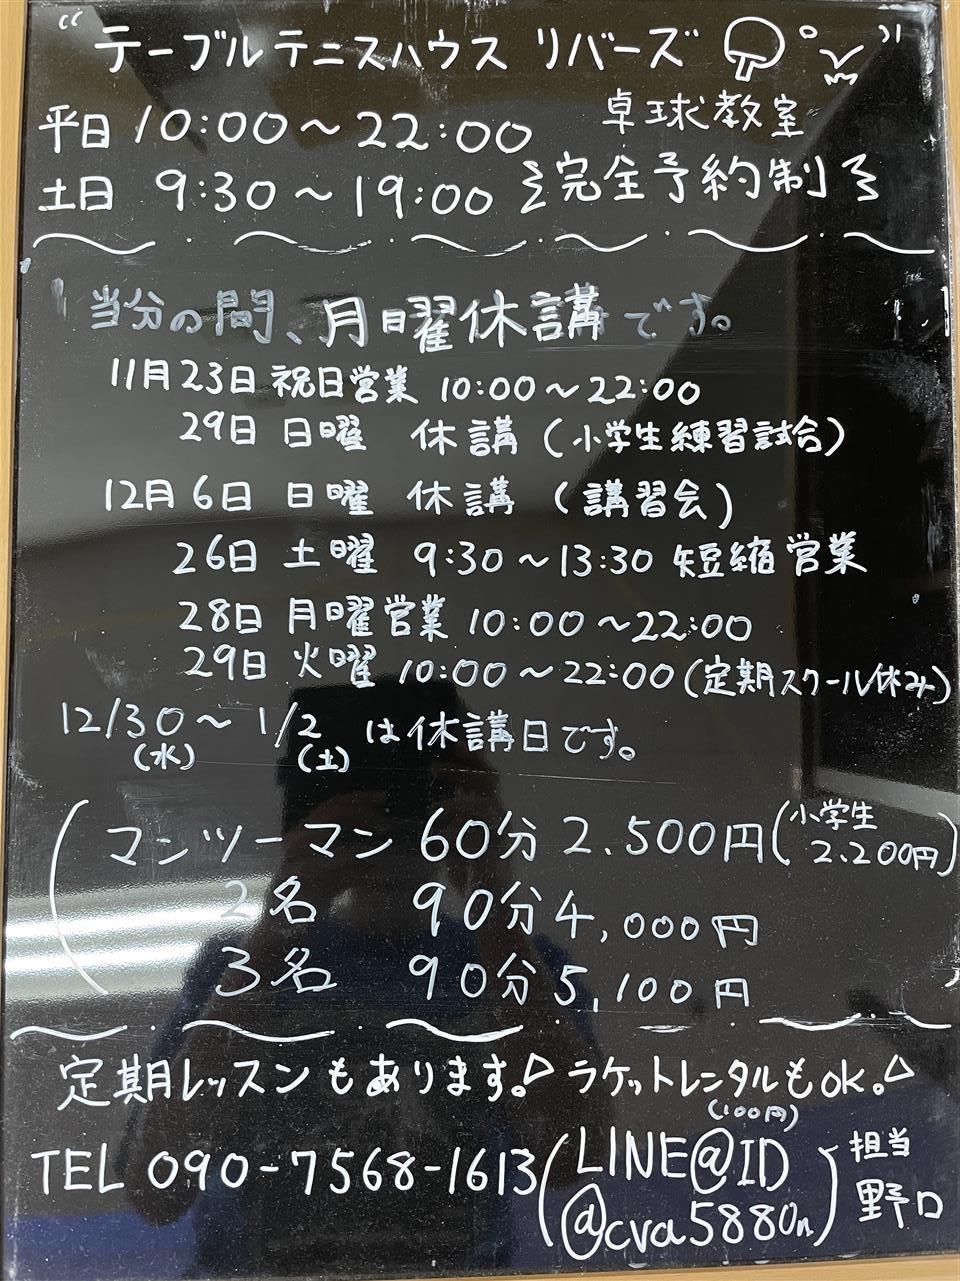 “テーブルテニスハウス リバーズ”
平日 10:00～22:00 卓球教室
土日 9:30～19:00 完全予約制
当分の間、月曜休講です。
11月23日 祝日営業 10:00～22:00
29日 日曜 休講 (小学生練習試合)
12月6日 日曜 休講 (講習会)
26日 土曜 9:30～13:30 短縮営業
28日 月曜営業 10:00～22:00
29日 火曜 10:00～22:00(定期スクール休み)
12/30～1/2 は休講日です。
(水) (土)
マンツーマン 60分 2.500円(小学生 2.200円)
2名 90分 4,000円
3名 90分 5,100円
定期レッスンもあります。ラケットレンタルもOK。
(100円)
TEL 090-7568-1613 (LINE@ID @cva5880n) 担当 野口